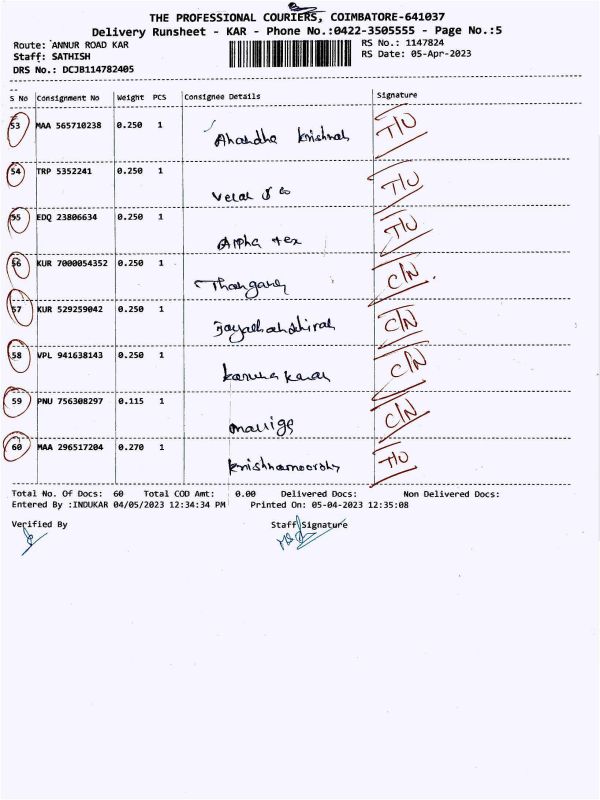 THE PROFESSIONAL COURIERS, COIMBATORE-641037
Delivery Runsheet - KAR - Phone No.:0422-3505555 - Page No.:5
Route: ANNUR ROAD KAR RS No.: 1147824
Staff: SATHISH RS Date: 05-Apr-2023
DRS No.: DCJB114782405
S No Consignment No Weight PCS Consignee Details Signature
53 MAA 565710238 0.250 1 T/U
Ahandha Krishnah
54 TRP 5352241 0.250 1 T/U
Velah & Co
55 EDQ 23806634 0.250 1 T/U
Alpha tex
56 KUR 7000054352 0.250 1 C/N
57 KUR 529259042 0.250 1 C/N
58 VPL 941638143 0.250 1 C/N
59 PNU 756308297 0.115 1 C/N
60 MAA 296517204 0.270 1 T/U
Krishnamoorthy
Total No. Of Docs: 60 Total COD Amt: 0.00 Delivered Docs: Non Delivered Docs:
Entered By :INDUKAR 04/05/2023 12:34:34 PM Printed On: 05-04-2023 12:35:08
Verified By Staff Signature